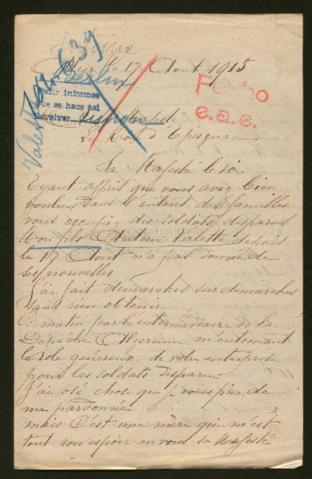 17 Août 1915
Berlin
Pedir informes
que se hace así
devolver
e.a.e.
Valette
Sa Majesté
le Roi d'Espagne
Sa Majesté le roi
Eyant appris que vous avez bien
voulu dans l'interet des familles
vous occupée des soldats disparus
Mon fils Valette depuis
le 17 Août n'a pas donné de
ses nouvelles
J'ai fait demarches sur demarches
sans rien obtenir
Ce matin par l'intermédiaire de la
Depeche Algerienne m'entonant
le role genereux de votre entreprise
pour les soldats disparus
J'ai osé chose que je vous prie de
me pardonnée
mais C'est une mère qui met
tout son espoir en vous sa Majesté